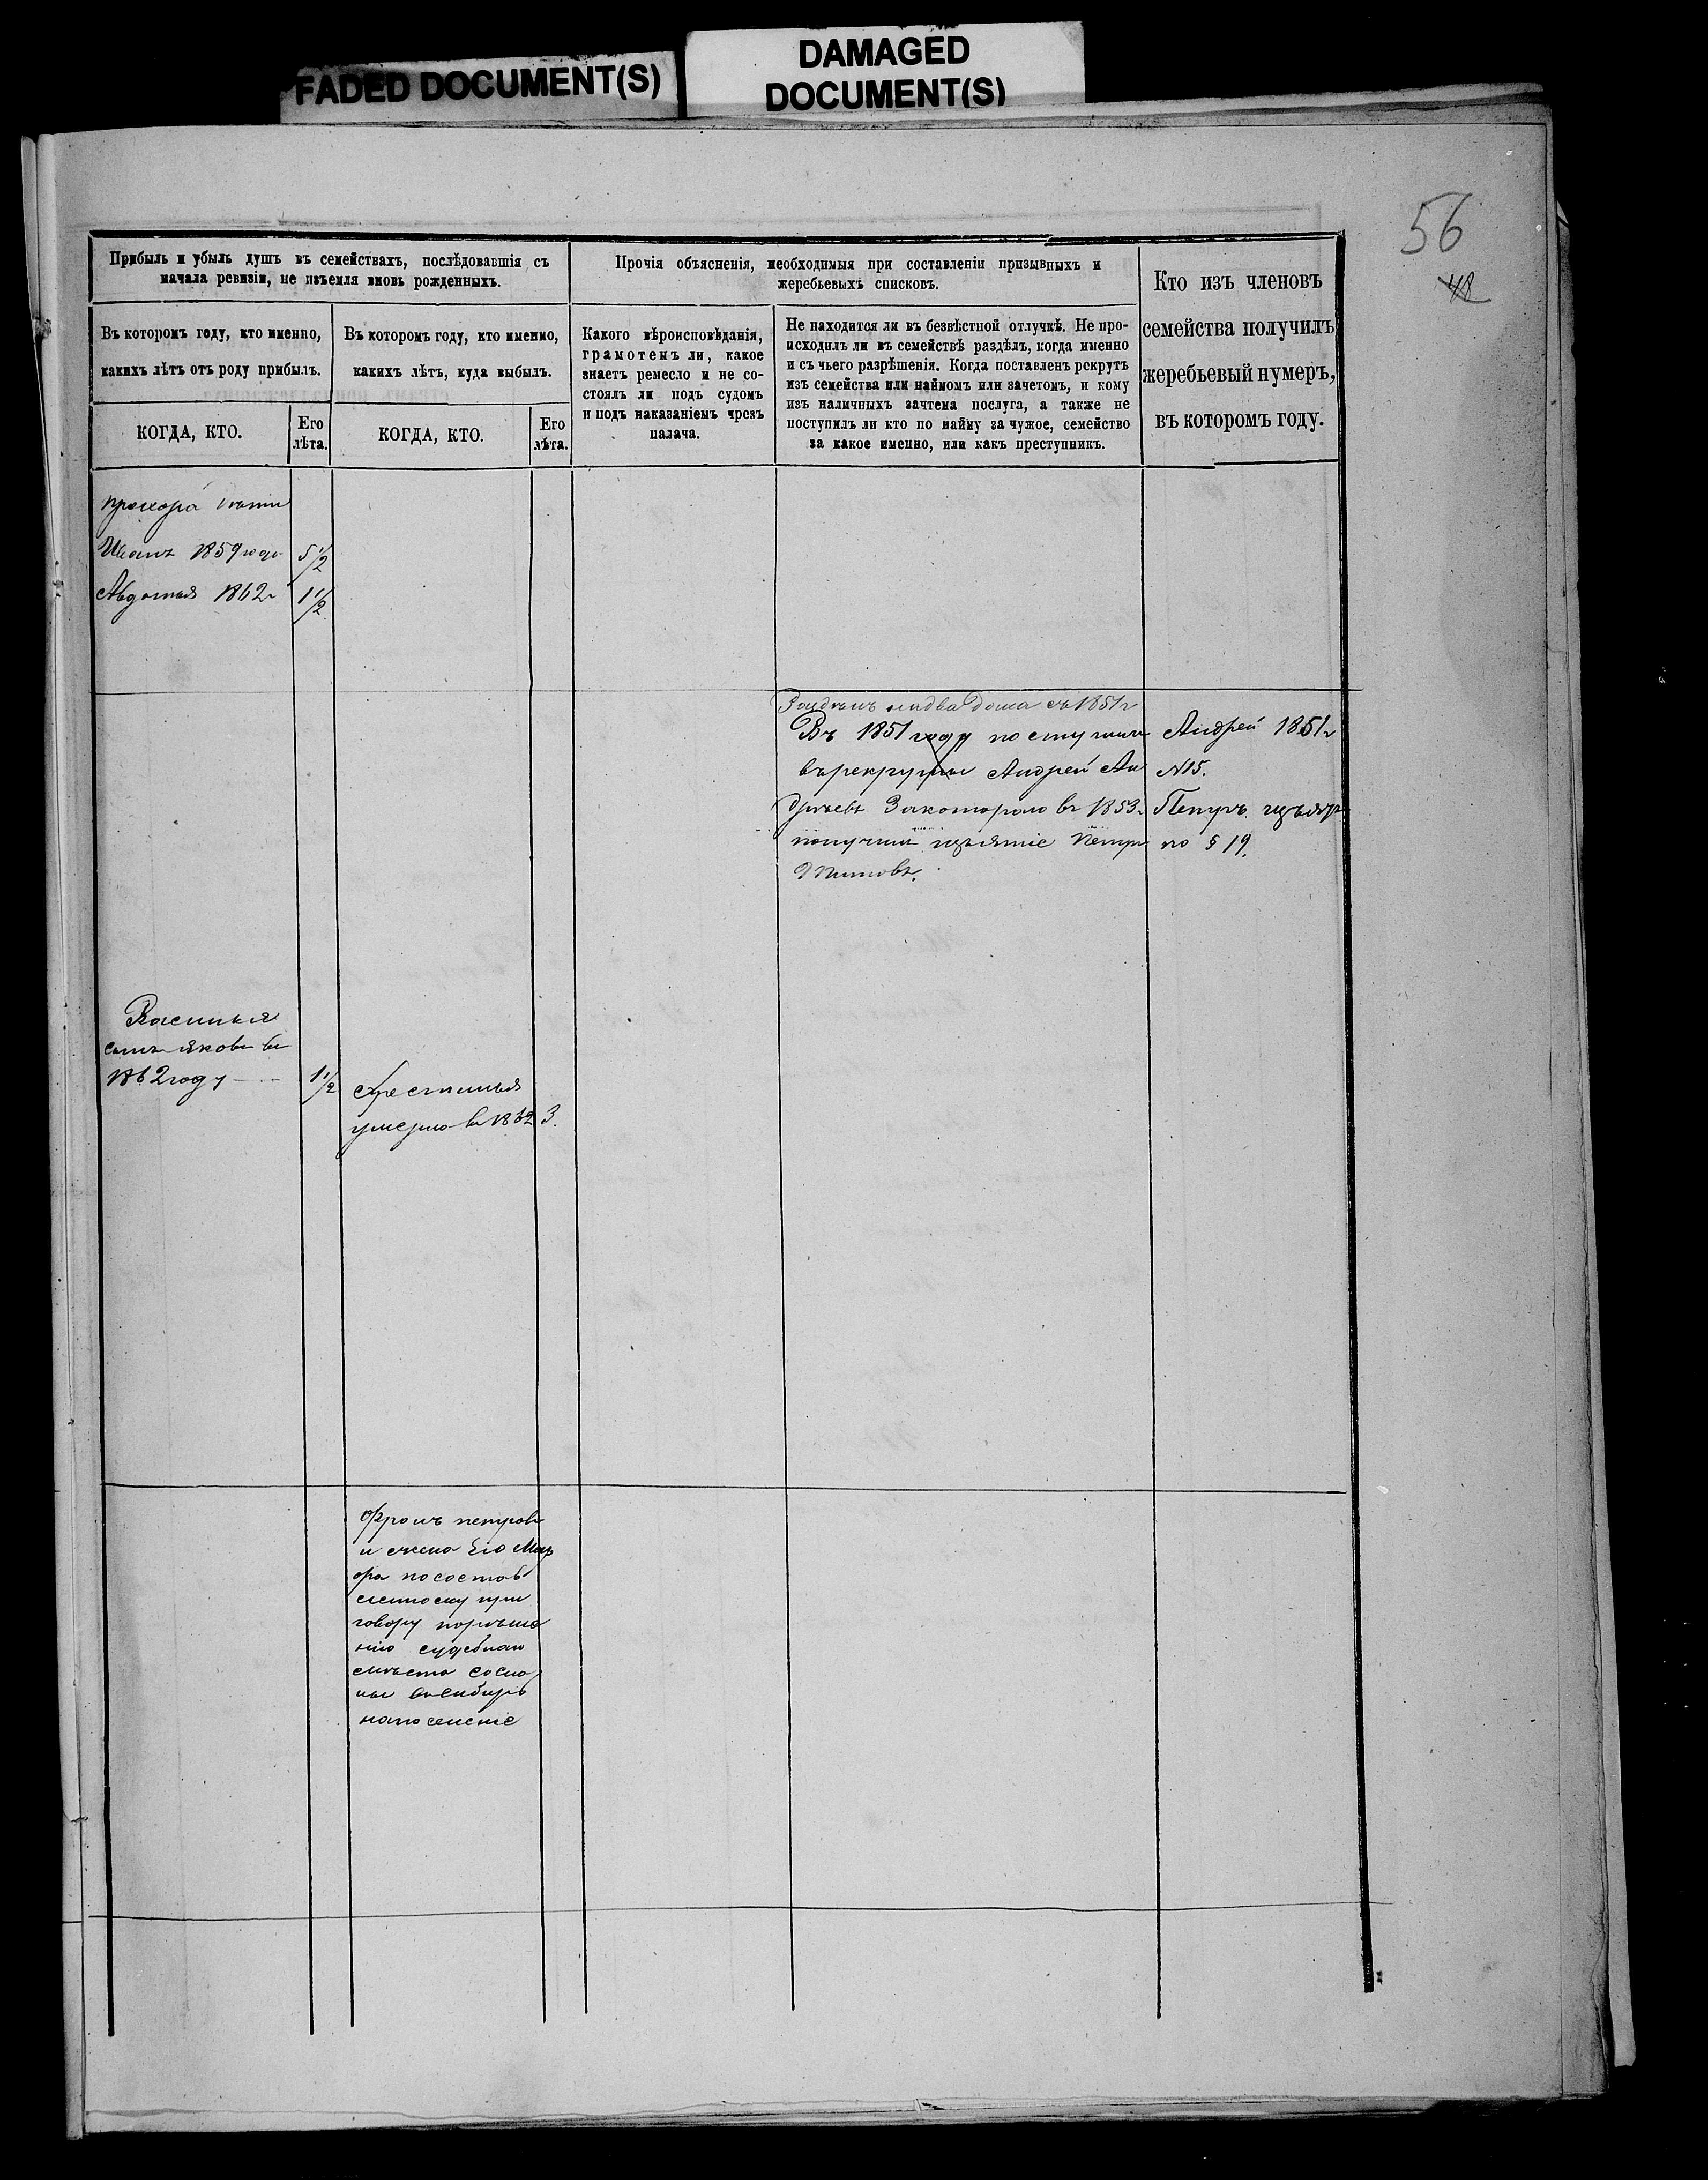 FADED DOCUMENT(S)
DAMAGED
DOCUMENT(S)
56
48
Прибыль и убыль душъ въ семействахъ, послѣдовавшія съ
начала ревизіи, не изъемля вновь рожденныхъ.
Въ которомъ году, кто именно,
какихъ лѣтъ отъ роду прибылъ.
КОГДА, КТО.
Его
лѣта.
Въ которомъ году, кто именно,
какихъ лѣтъ, куда выбылъ.
КОГДА, КТО.
Его
лѣта.
Прочія объясненія, необходимыя при составленіи призывныхъ и
жеребьевыхъ списковъ.
Какого вѣроисповѣданія,
грамотенъ ли, какое
знаетъ ремесло и не со-
стоялъ ли подъ судомъ
и подъ наказаніемъ чрезъ
палача.
Не находится ли въ безвѣстной отлучкѣ. Не про-
исходилъ ли въ семействѣ раздѣлъ, когда именно
и съ чьего разрѣшенія. Когда поставленъ рекрутъ
изъ семейства или наймомъ или зачетомъ, и кому
изъ наличныхъ зачтена послуга, а также не
поступилъ ли кто по найму за чужое, семейство
за какое именно, или какъ преступникъ.
Кто изъ членовъ
семейства получилъ
жеребьевый нумеръ,
въ которомъ году.
прохора
Иванъ 1859 года 5 1/2
Авдотья 1862 г 1 1/2
Раздѣлъ на два дома съ 1851 г
Въ 1851 году поступилъ
въ рекруты Андрей Ан
дрѣевъ За которого въ 1853 г
получилъ изъятіе Петръ
Андрей 1851 г
№ 15.
Петръ изъятъ
по § 19.
Василья
сынъ яковъ въ
1862 году 1 1/2
Хрестинья
умерла въ 1862 3.
Фролъ петровъ
и жена его Мав
ра по состав
ленному при
говору порѣше
нію судебнаго
мѣста сосла
ны въ сибирь
на поселеніе